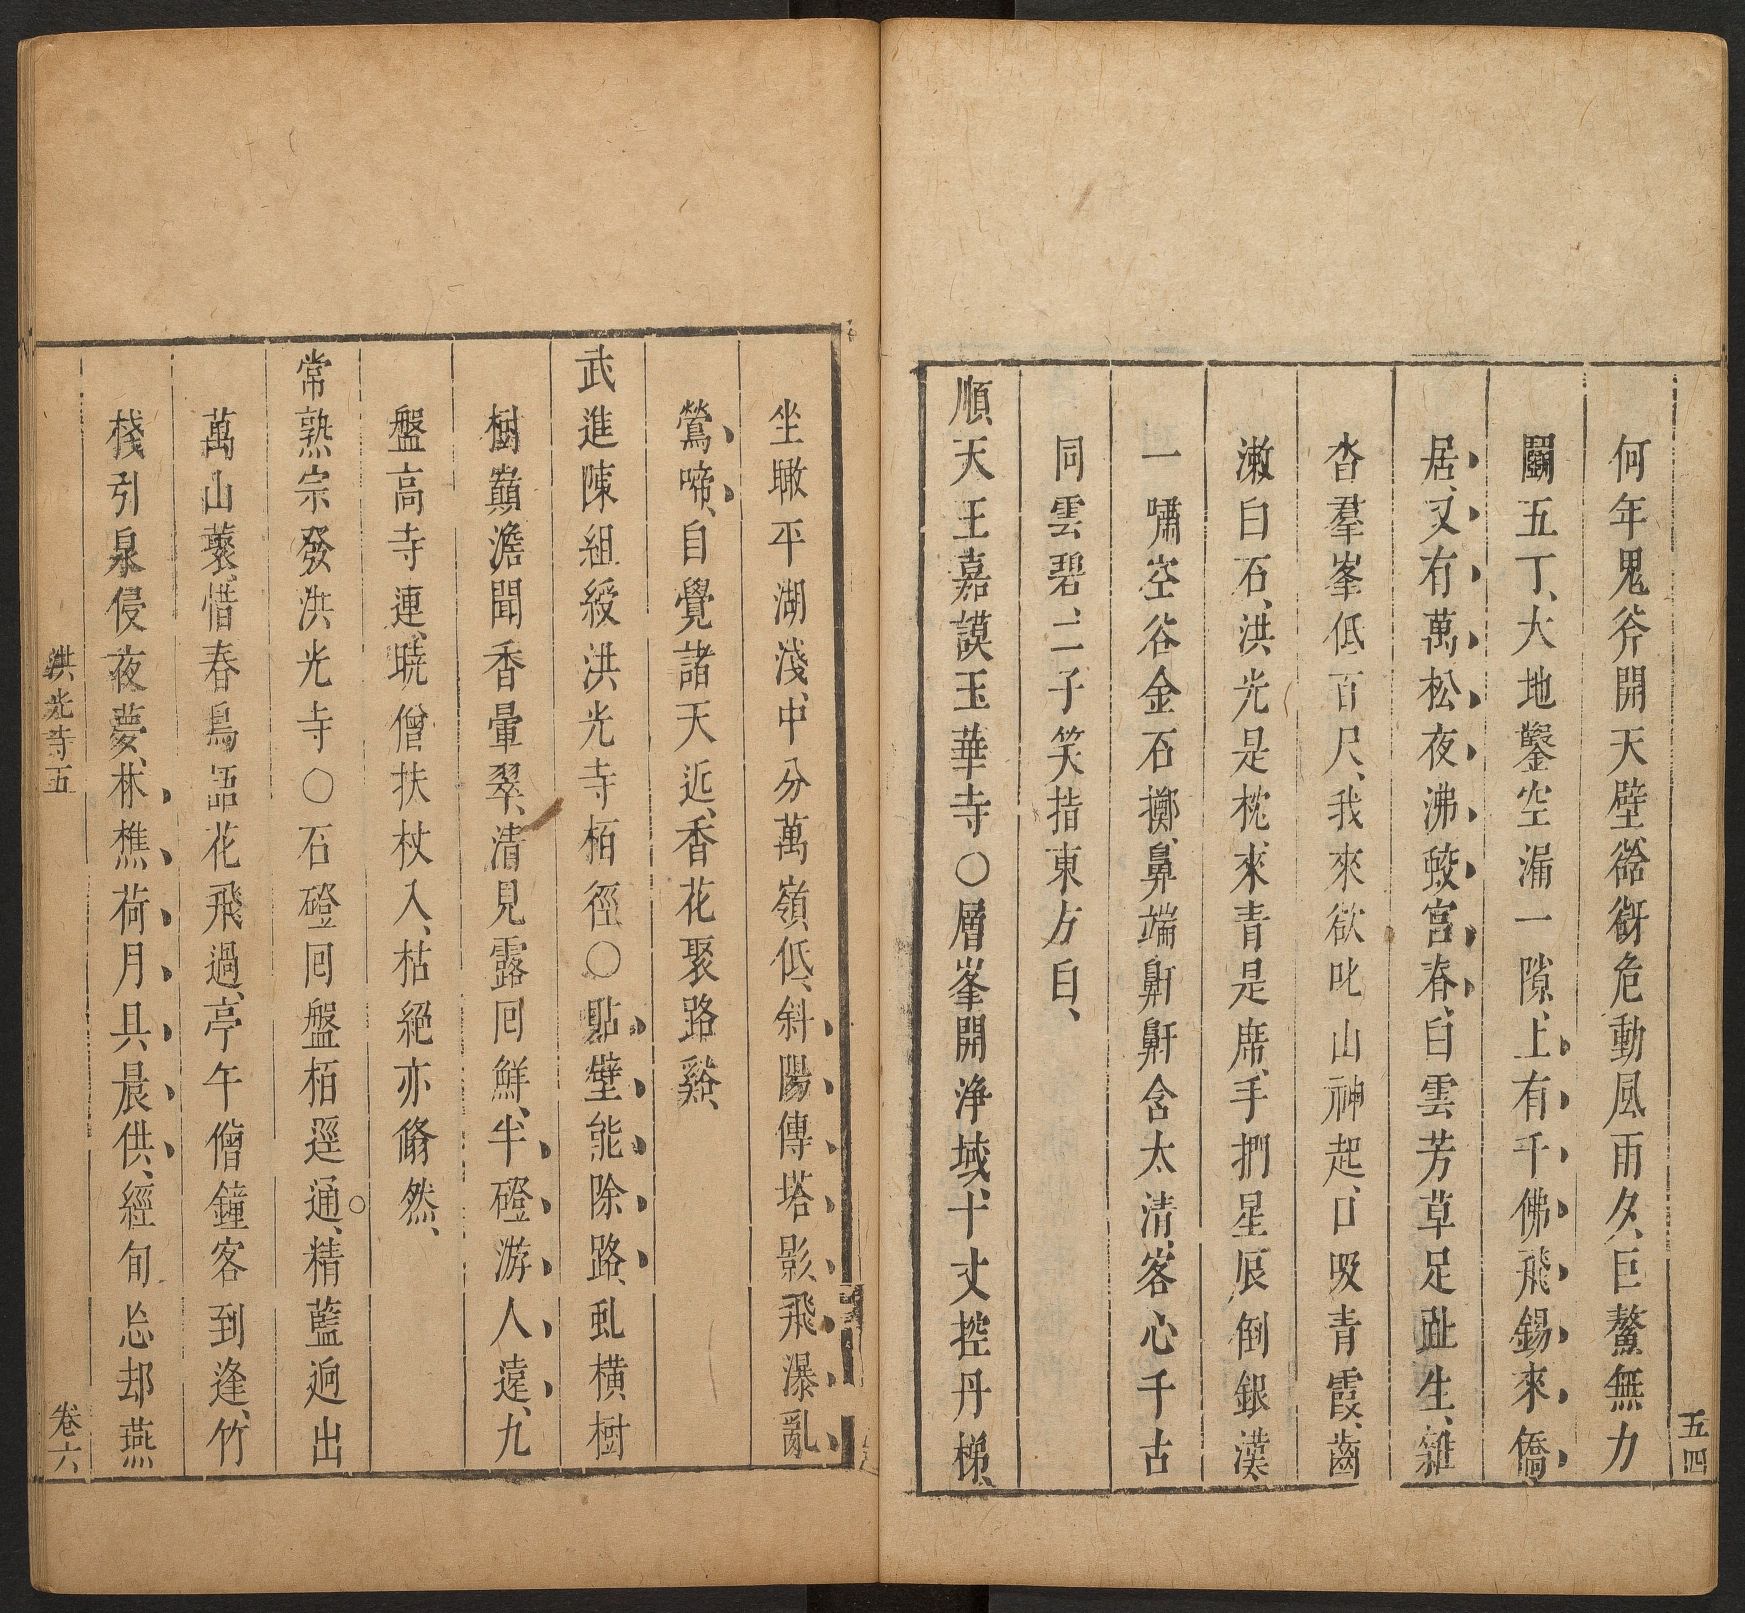 五四
何年鬼斧開天壁谽谺危動風雨夕、巨鰲無力
鬭五丁、大地鑿空漏一隙、上有千佛飛錫來、僑
居、又有萬松夜沸蛟宮春、白雲芳草足趾生、雜
沓羣峯低百尺、我來欲叱山神起、口吸青霞、齒
漱白石、洪光是枕、來青是席、手捫星辰倒銀漢
一嘯空谷金石擲、鼻端鼾鼾含太清、客心千古
同雲碧、二子笑指東方白、
順天王嘉謨玉華寺○層峯開淨域、十丈控丹梯、
坐瞰平湖淺、中分萬嶺低、斜陽傳塔影、飛瀑亂
鶯啼、自覺諸天近、香花聚路谿、
武進陳組綬洪光寺栢徑○點壁能除路、虬橫樹
樹巔澹聞香暈翠、清見露囘鮮、半磴游人遠、九
盤高寺連、曉僧扶杖入、枯絕亦翛然、
常熟宗發洪光寺○石磴囘盤栢逕通、精藍逈出
萬山叢、惜春鳥語花飛過、亭午僧鐘客到逢、竹
棧引泉侵夜夢、林樵荷月具晨供、經旬忘却燕
洪光寺五
卷六